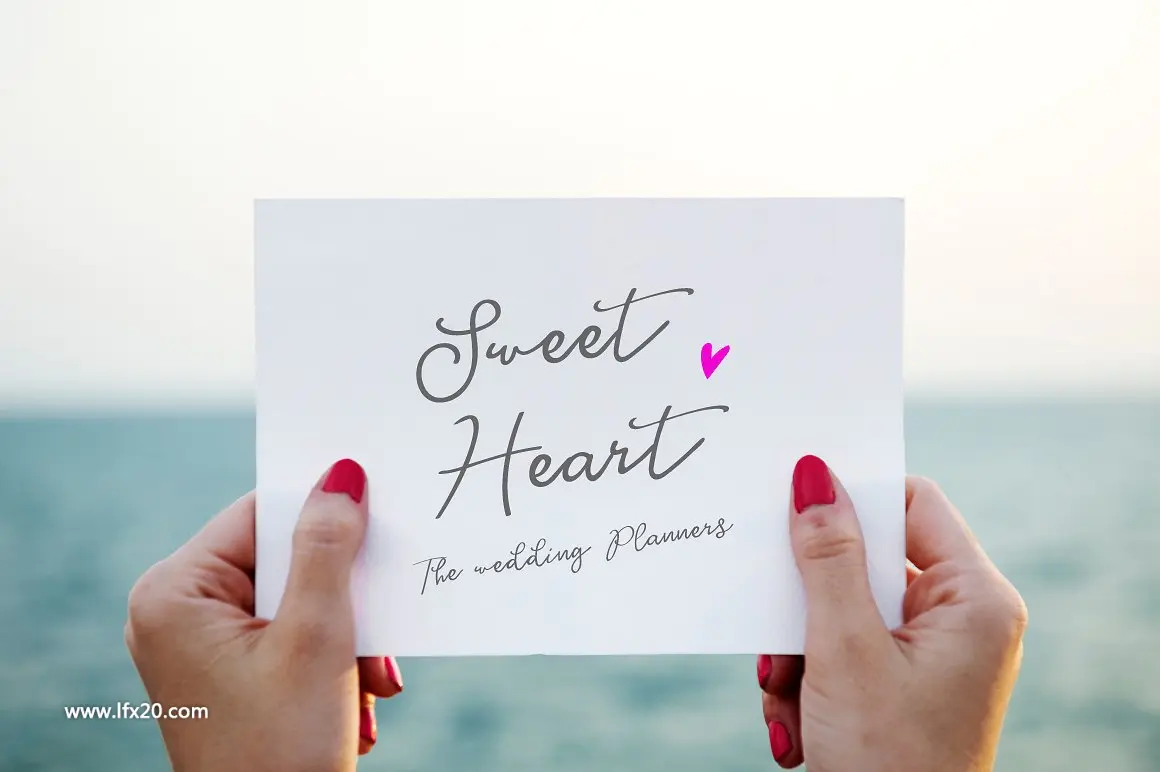 Sweet
Heart
The wedding Planners
www.lfx20.com